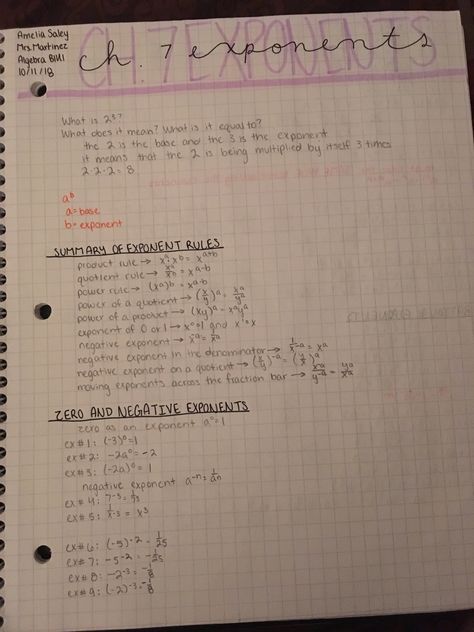 Amelia Saley
Mrs. Martinez
Algebra B111
10/11/18
CH. 7 EXPONENTS
ch. 7 exponents
What is 2³?
What does it mean? What is it equal to?
the 2 is the base and the 3 is the exponent
it means that the 2 is being multiplied by itself 3 times
2·2·2 = 8
aᵇ
a = base
b = exponent
SUMMARY OF EXPONENT RULES
product rule → xᵃ·xᵇ = xᵃ⁺ᵇ
quotient rule → xᵃ/xᵇ = xᵃ⁻ᵇ
power rule → (xᵃ)ᵇ = xᵃ·ᵇ
power of a quotient → (x/y)ᵃ = xᵃ/yᵃ
power of a product → (xy)ᵃ = xᵃyᵃ
exponent of 0 or 1 → x⁰=1 and x¹=x
negative exponent → x⁻ᵃ = 1/xᵃ
negative exponent in the denominator → 1/x⁻ᵃ = xᵃ
negative exponent on a quotient → (x/y)⁻ᵃ = (y/x)ᵃ
moving exponents across the fraction bar → x⁻ᵃ/y⁻ᵃ = yᵃ/xᵃ
ZERO AND NEGATIVE EXPONENTS
zero as an exponent a⁰=1
ex#1: (-3)⁰=1
ex#2: -2a⁰= -2
ex#3: (-2a)⁰= 1
negative exponent a⁻ⁿ= 1/aⁿ
ex#4: 7⁻³= 1/7³
ex#5: 1/x⁻³ = x³
ex#6: (-5)⁻² = 1/25
ex#7: -5⁻² = -1/25
ex#8: -2⁻³= -1/8
ex#9: (-2)⁻³= -1/8